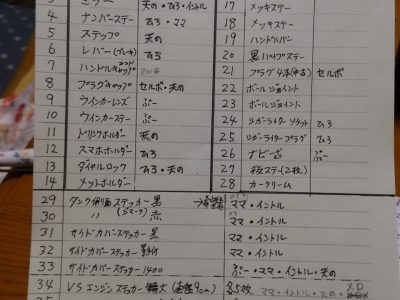 3 ミラー 天の・ひろ・イントル
4 ナンバーステー ひろ・ママ
5 ステップ 天の
6 レバー(ブレーキ) ひろ
7 ハンドルキャップ
8 プラグキャップ セルボ・天の
9 ウインカーレンズ ぷー
10 ウインカーステー ぷー
11 ドリンクホルダー 天の
12 スマホホルダー ひろ
13 ダイヤルロック ひろ・天の
14 メットホルダー
17 メッキステー
18 メッキステー
19 ハンドルバー
20 黒パイプステー
21 プラグ4本(中古) セルボ
22 ボールジョイント
23 ボールジョイント
24 シガーライターソケット ひろ
25 シガーライタープラグ ひろ
26 ナビ一式 ぷー
27 板ステイ(2枚)
28 カークリーム
29 タンク側面ステッカー 黒 ママ・イントル
30 〃 (Sマーク) 赤 ママ・イントル
31 サイドカバーステッカー 黒 ママ・イントル
32 サイドカバーステッカー ママ・イントル
33 サイドカバーステッカー 1400 ぷー・ママ・イントル・天の
34 VSエンジンステッカー 特大(直径9cm) 各5枚